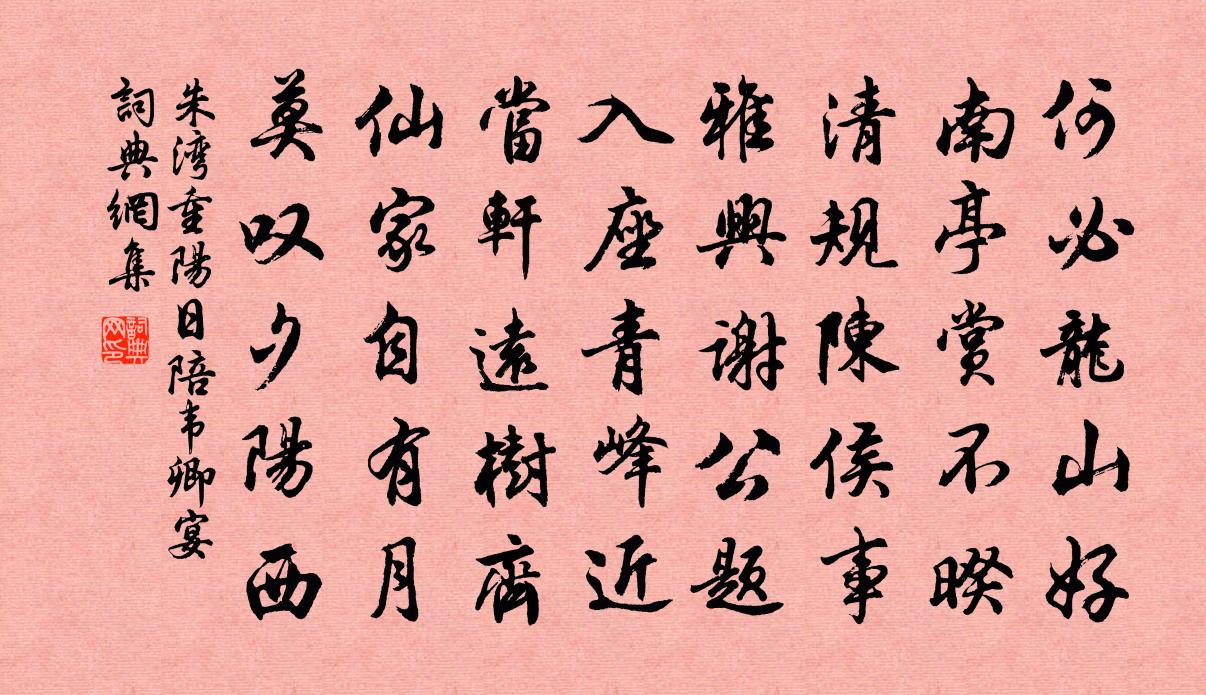 何必龍山好
南亭賞不暌
清規陳侯事
雅興謝公題
入座青峰近
當軒遠樹齊
仙家自有月
莫叹夕陽西
朱湾重陽日陪韦卿宴
詞典網集
詞典网印